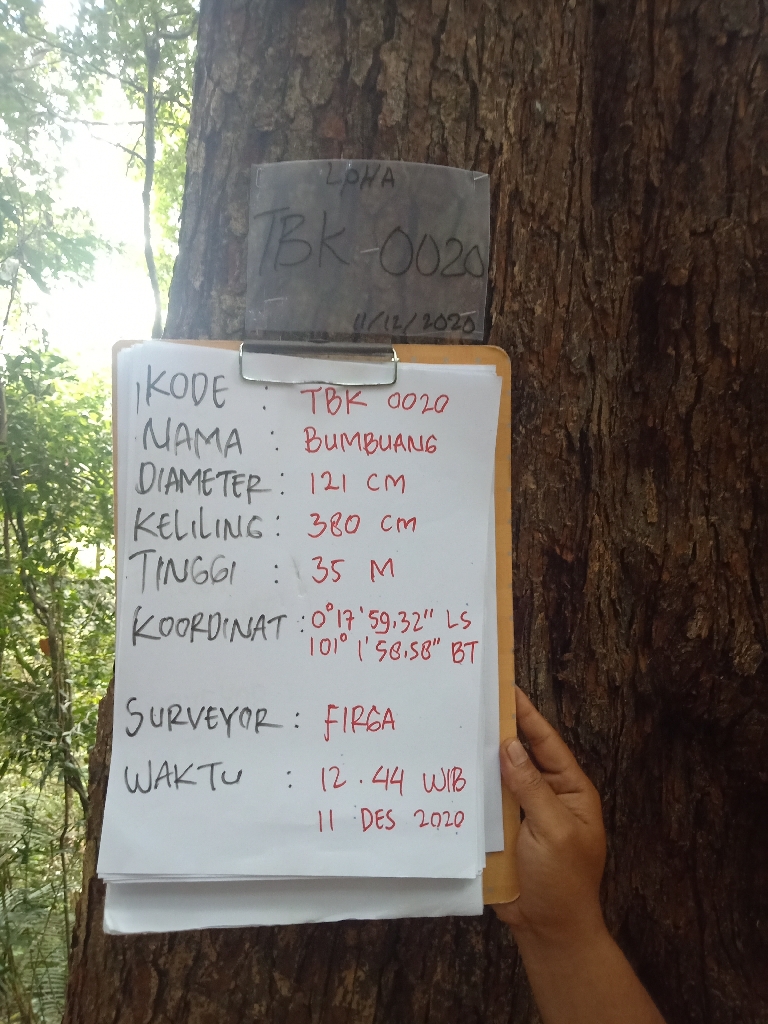 LPHA
TBK-0020
11/12/2020
KODE : TBK 0020
NAMA : BUMBUANG
DIAMETER : 121 CM
KELILING : 380 CM
TINGGI : 35 M
KOORDINAT : 0°17'59,32" LS
101° 1'58,58" BT
SURVEYOR : FIRGA
WAKTU : 12.44 WIB
11 DES 2020